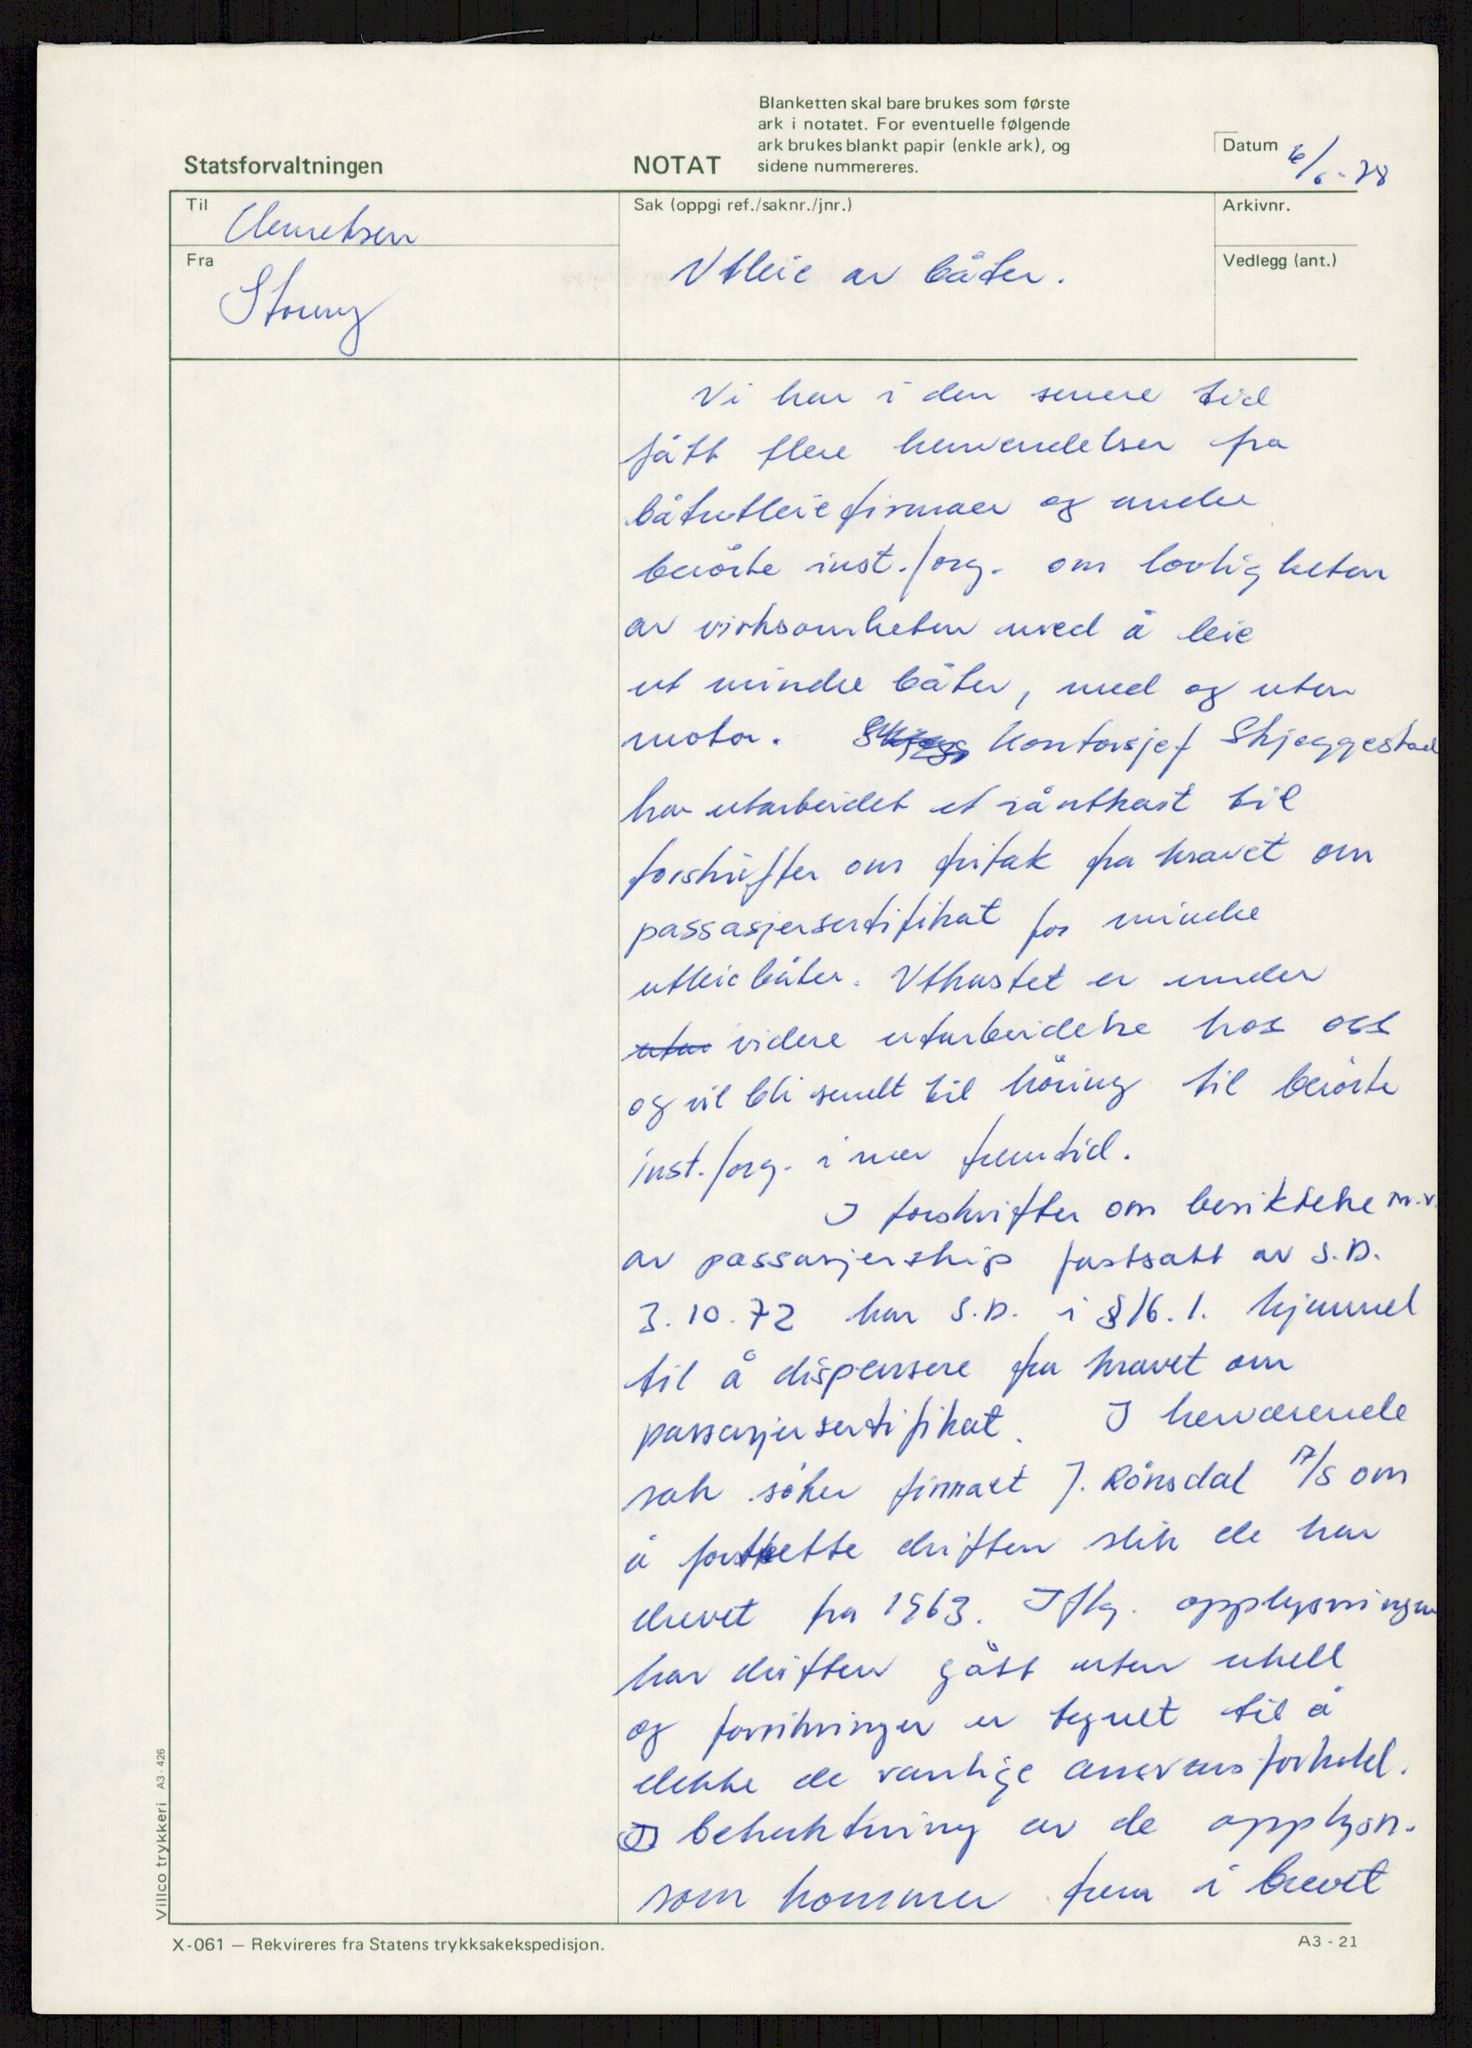 Blanketten skal bare brukes som første
ark i notatet. For eventuelle følgende
ark brukes blankt papir (enkle ark), og
sidene nummereres.
Statsforvaltningen
NOTAT
Datum 6/6-78
Til
Fra
Sak (oppgi ref./saknr./jnr.)
Utleie av båter.
Arkivnr.
Vedlegg (ant.)
Vi har i den senere tid
fått flere henvendelser fra
båtutleiefirmaer og andre
berørte inst./org. om lovligheten
av virksomheten med å leie
ut mindre båter, med og uten
motor. Kontorsjef Skjeggestad
har utarbeidet et råutkast til
forskrifter om fritak fra kravet om
passasjersertifikat for mindre
utleiebåter. Utkastet er under
videre utarbeidelse hos oss
og vil bli sendt til høring til berørte
inst./org. i nær fremtid.
I forskrifter om besiktelse m.v.
av passasjerskip fastsatt av S.D.
3.10.72 har S.D. i §16.1. hjemmel
til å dispensere fra kravet om
passasjersertifikat. I herværende
sak søker firmaet J. Rönsdal A/S om
å fortsette driften slik de har
drevet fra 1963. Iflg. opplysningen
har driften gått uten uhell
og forsikringer er tegnet til å
dekke de vanlige ansvarsforhold.
I betraktning av de opplysn.
som kommer frem i brevet
Villco trykkeri A3-426
X-061 — Rekvireres fra Statens trykksakekspedisjon.
A3-21